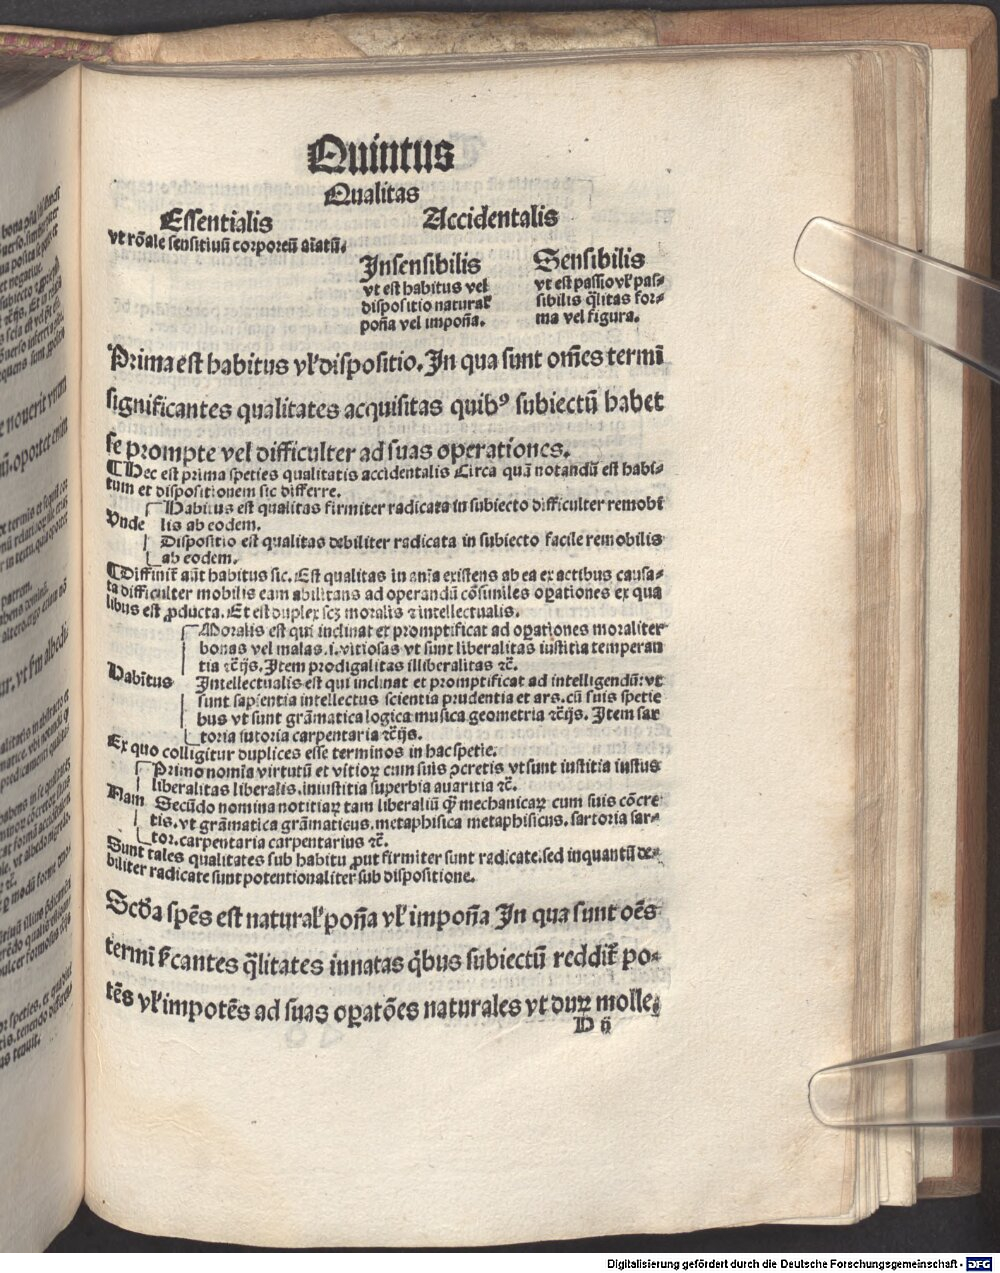 Quintus
Qualitas
Essentialis
vt rōale sensitiuū corporeū aīatū.
Accidentalis
Insensibilis
vt est habitus vel
dispositio naturaƚ
poña vel impoña.
Sensibilis
vt est passio vƚ pas-
sibilis q̄litas for-
ma vel figura.
Prima est habitus vƚ dispositio. In qua sunt om̄es termī
significantes qualitates acquisitas quibꝰ subiectū habet
se prompte vel difficulter ad suas operationes.
¶ Hec est prima speties qualitatis accidentalis Circa quā notandū est habi-
tum et dispositionem sic differre.
Vnde
Habitus est qualitas firmiter radicata in subiecto difficulter remobi
lis ab eodem.
Dispositio est qualitas debiliter radicata in subiecto facile remobilis
ab eodem.
¶ Diffinit᷑ aūt habitus sic. Est qualitas in aīa existens ab ea ex actibus causa-
ta difficulter mobilis eam abilitans ad operandū cōsimiles oꝑationes ex qua
libus est ꝓducta. Et est duplex scꝫ moralis ⁊ intellectualis.
Habitus
Moralis est qui inclinat et promptificat ad oꝑationes moraliter
bonas vel malas .i. vitiosas vt sunt liberalitas iustitia temperan
tia ⁊c̄ijs. Item prodigalitas illiberalitas ⁊c̄.
Intellectualis est qui inclinat et promptificat ad intelligendū: vt
sunt sapientia intellectus scientia prudentia et ars. cū suis spetie
bus vt sunt grāmatica logica musica geometria ⁊c̄ijs. Item sar
toria sutoria carpentaria ⁊c̄ijs.
Ex quo colligitur duplices esse terminos in hac spetie.
Nam
Primo nomīa virtutū et vitioꝝ cum suis ↄcretis vt sunt iustitia iustus
liberalitas liberalis. iniustitia superbia auaritia ⁊c̄.
Secūdo nomina notitiaꝝ tam liberaliū q̄ꝫ mechanicaꝝ cum suis cōcre
tis. vt grāmatica grāmaticus. metaphisica metaphisicus. sartoria sar-
tor. carpentaria carpentarius ⁊c̄.
Sunt tales qualitates sub habitu ꝓut firmiter sunt radicate. sed inquantū de-
biliter radicate sunt potentionaliter sub dispositione.
Scd̄a spēs est naturaƚ poña vƚ impoña In qua sunt oēs
termī sͥcantes q̄litates innatas qͥbus subiectū reddit᷑ po-
tēs vƚ impotēs ad suas oꝑatōes naturales vt duꝝ molle.
D ij
Digitalisierung gefördert durch die Deutsche Forschungsgemeinschaft - DFG